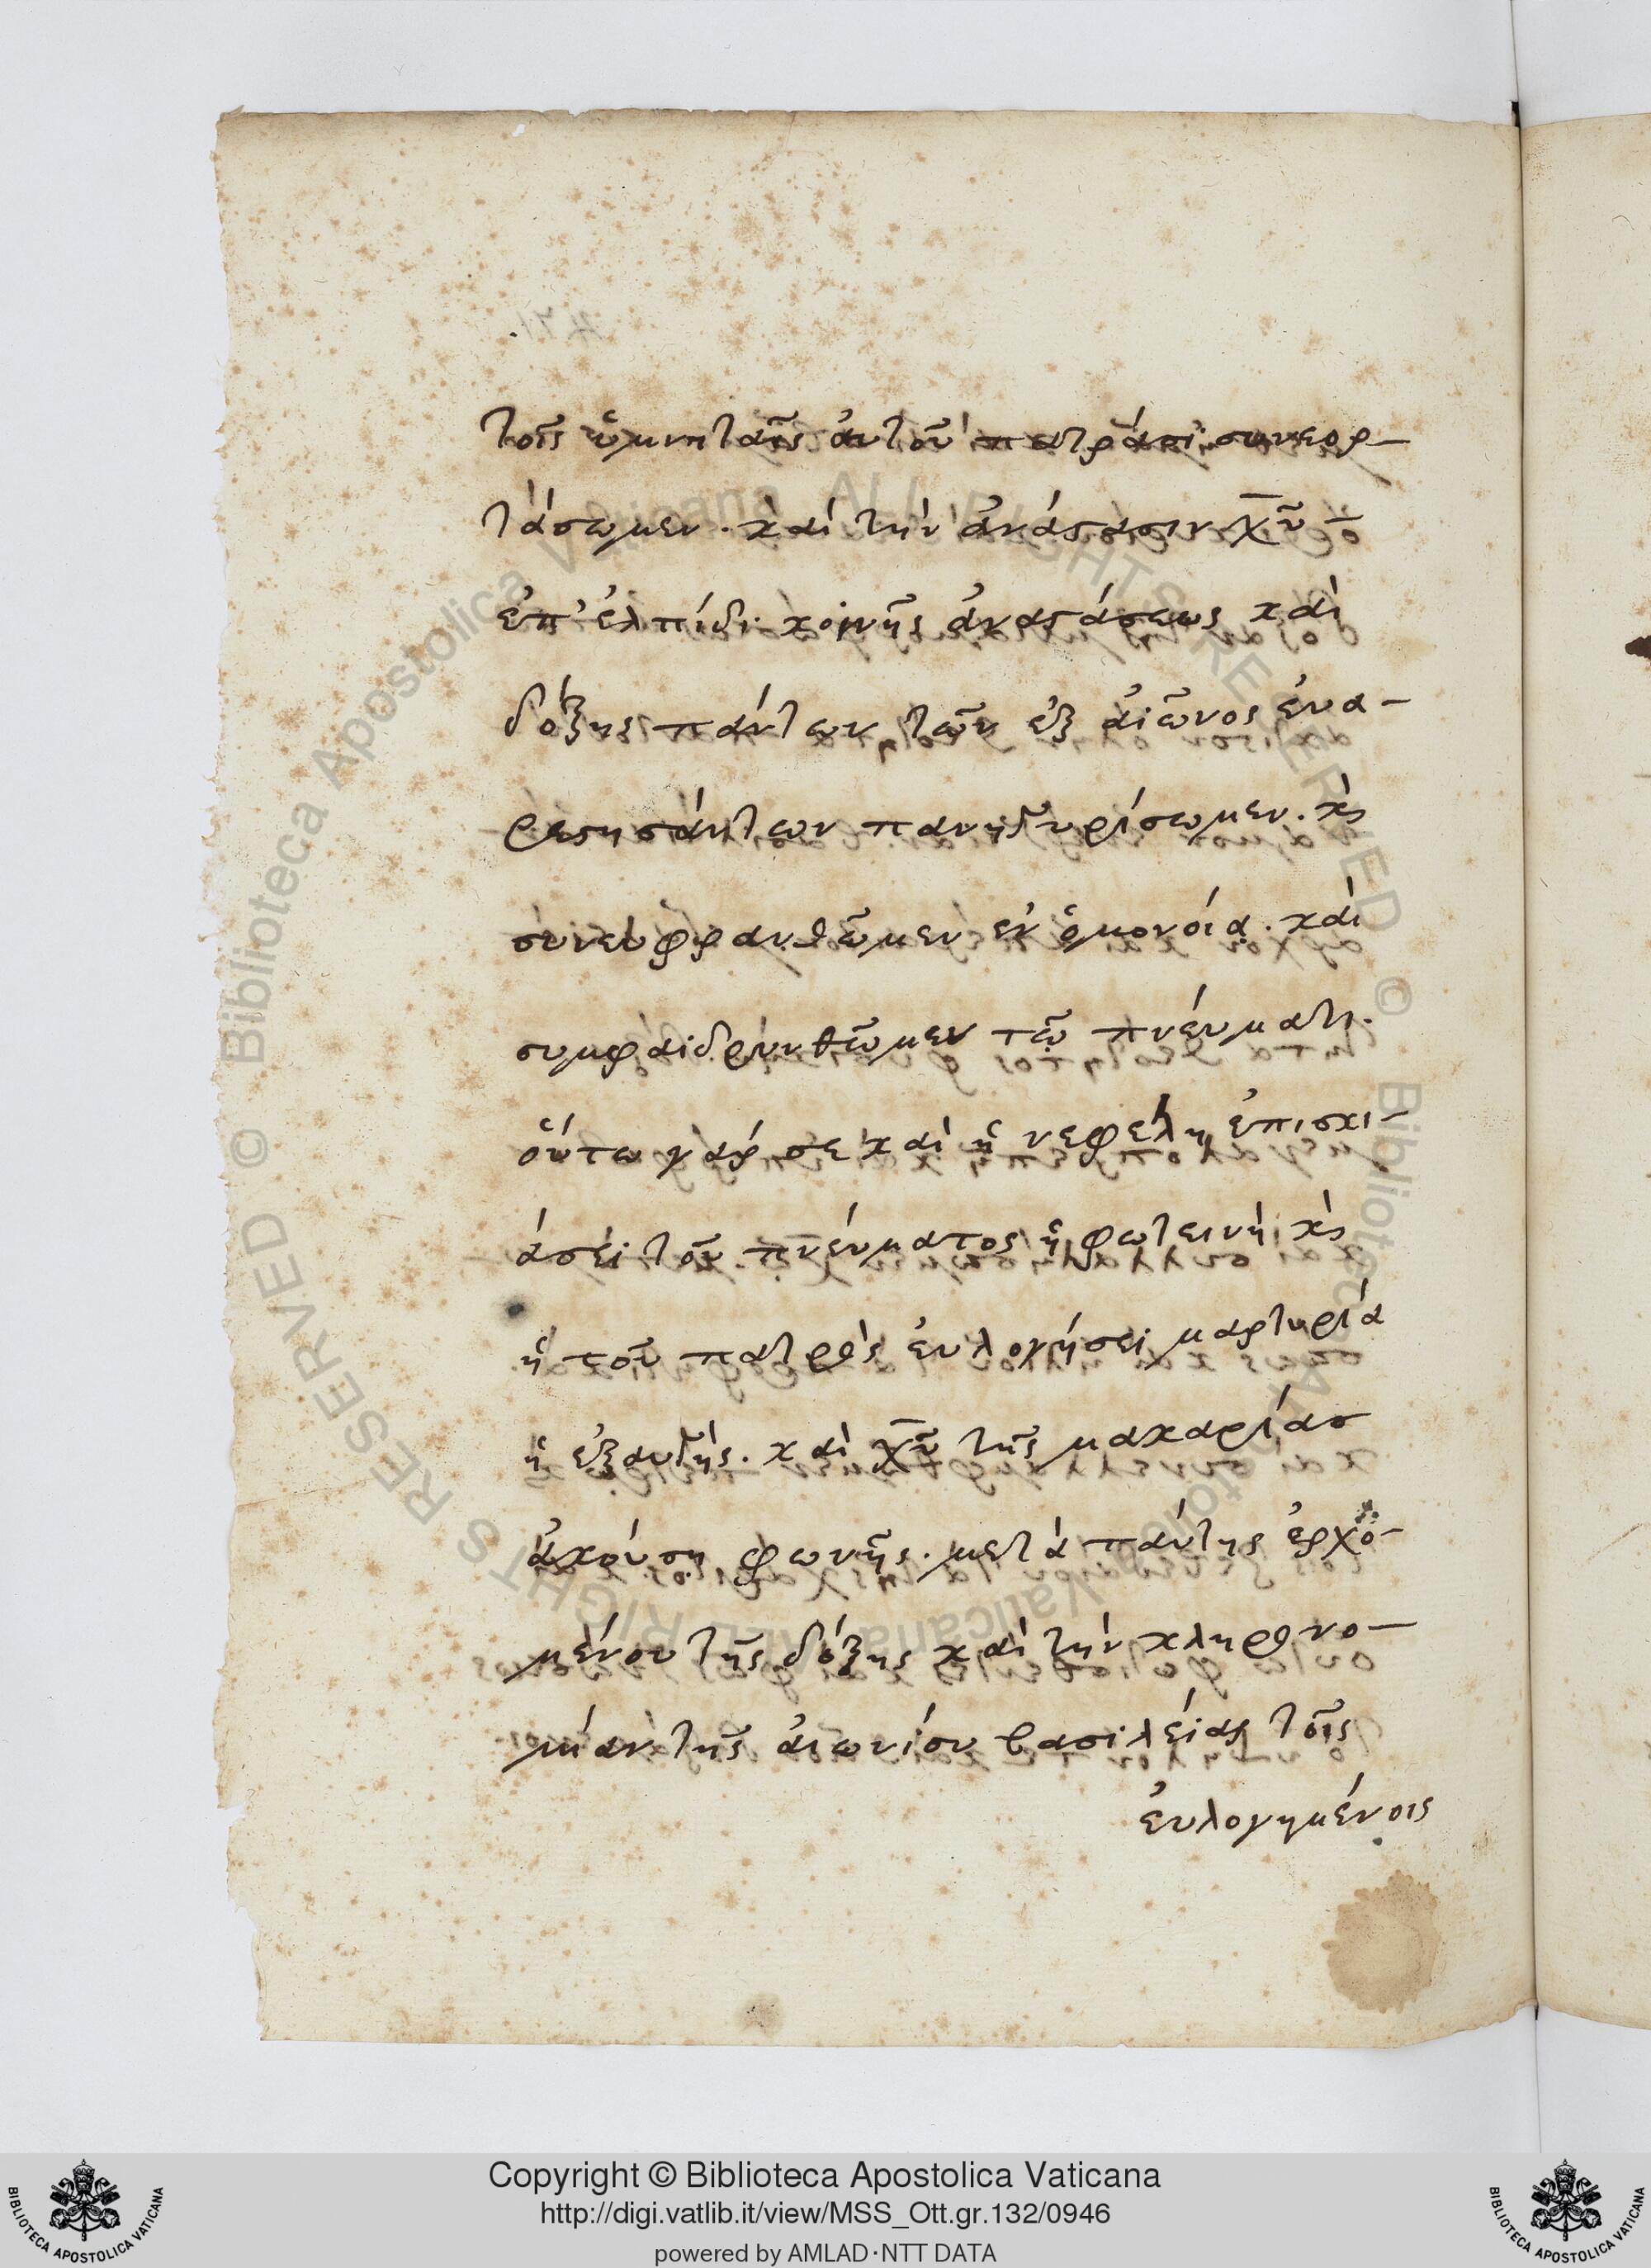 τοῖς ὑμνηταῖς ἀυτοῦ πατράσι συνεορ-
τάσωμεν. καὶ τὴν ἀνάστασιν χ̅υ̅ -
ἐπ' ἐλπίδι κοινῆς ἀναστάσεως καὶ
δόξης πάντων τῶν ἐξ ἀιῶνος ἐυα-
ρεστησάντων πανηγυρίσωμεν. κὶ
συνευφρανθῶμεν ἐν ὁμονοίᾳ. καὶ
συμφαιδρυνθῶμεν τῷ πνέυματι.
ὅυτω γάρ σε καὶ ἡ νεφέλη ἐπισκι-
άσει τοῦ πνέυματος ἡ φωτεινὴ κὶ
ἡ τοῦ πατρὸς ἐυλογήσει μαρτυρία
ἡ ἐξαυτῆς. καὶ χ̅υ̅ τῆς μακαρίασ
ἀκούσῃ φωνῆς. μετὰ πάντης ἐρχο-
μένου τῆς δόξης καὶ τὴν κληρονο-
μίαν τῆς ἀιωνίου βασιλείας τοῖς
ἐυλογημένοις
Copyright © Biblioteca Apostolica Vaticana
http://digi.vatlib.it/view/MSS_Ott.gr.132/0946
powered by AMLAD·NTT DATA
BIBLIOTECA APOSTOLICA VATICANA
BIBLIOTECA APOSTOLICA VATICANA